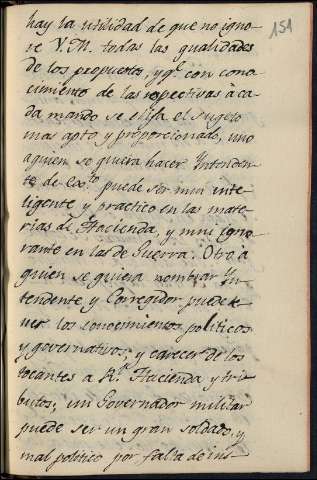 151
hay la utilidad de que no igno-
re V. M. todas las qualidades
de los propuestos, y q.e con cono-
cimiento de las respectivas à ca-
da mando se elija el sugeto
mas apto y proporcionado, uno
a quien se quiera hacer Yntenden-
te de Ex.to puede ser mui inte-
ligente y practico en las mate-
rias de Hacienda, y mui igno-
rante en las de Guerra. Otro à
quien se quiera nombrar Yn-
tendente y Corregidor puede te-
ner los conocimientos politicos
y governativos, y carecer de los
tocantes a R.l Hacienda y tri-
butos; un Governador militar
puede ser un gran soldado, y
mal politico por falta de ins-